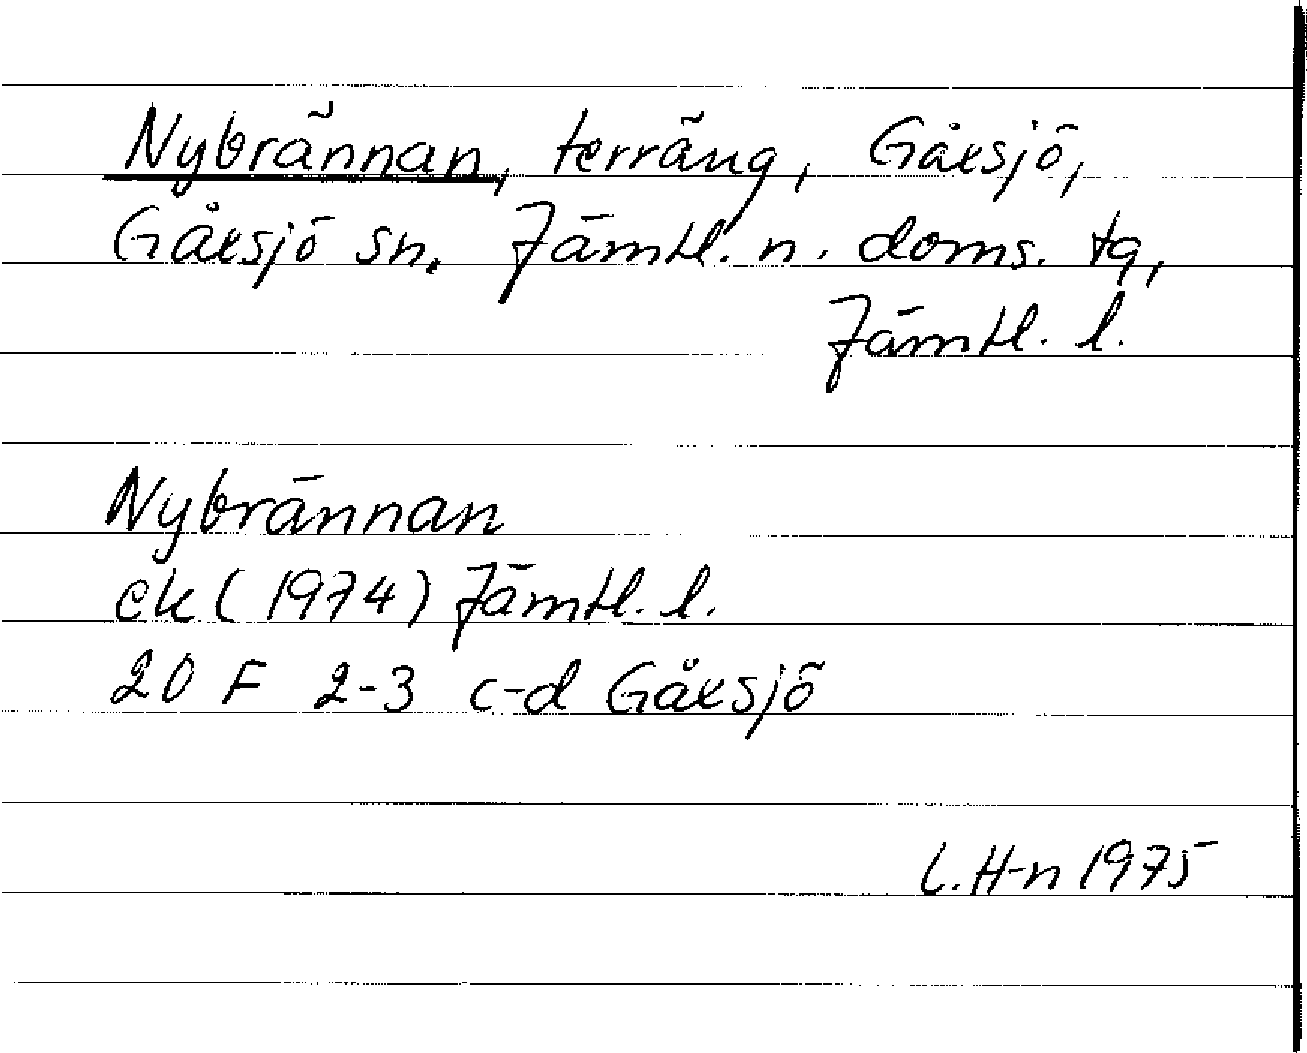 Nybrännan, terräng, Gåxsjö,
Gåxsjö sn. Jämtl. n. doms. tg,
Jämtl. l.
Nybrännan
ek (1974) Jämtl. l.
20 F 2-3 c-d Gåxsjö
L.H-n 1975